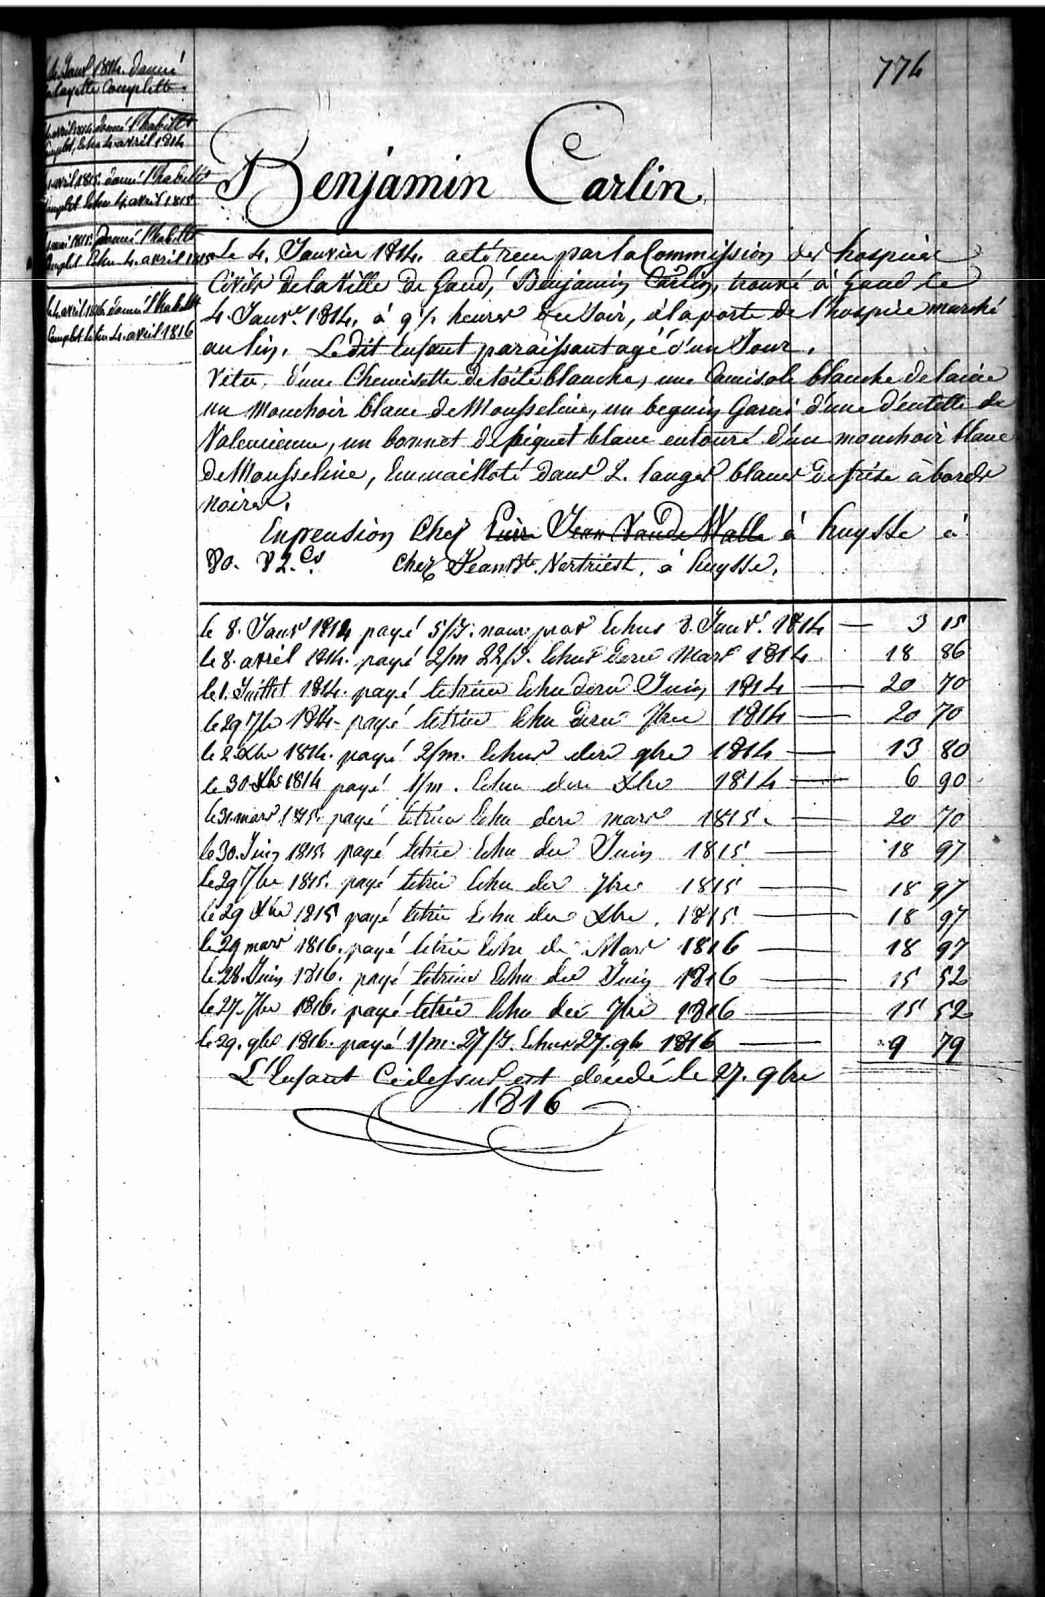 774
le 4. Janv.r 1814. donné
la layette Complette.
4. avril 1814 donné l'habillt
Complet, Echu 4. avril 1814
avril 1815. donné l'habillt
Complet Echu 4. avril 1815
1815. donné l'habillt
Complet Echu 4. avril 1815
le 4 avril 1816 donné l'habillt
Complet Echu 4. avril 1816
Benjamin Carlin.
Le 4. Janvier 1814. a eté recu par la Commission des hospices
Civils de la Ville de Gand, Benjamin Carlin, trouvé à Gand le
4. Janv.r 1814. à 9 1/2 heures du Soir, à la porte de l'hospice marché
au lin. Le dit Enfant paraissant agé d'un Jour.
Vetu, d'une Chemisette de toile blanche, une Camisole blanche de laine
un Mouchoir blanc de Mousseline, un beguin Garni d'une dentelle de
Valencienne, un bonnet de piquet blanc entouré d'un mouchoir blanc
de Mousseline, Emmailloté dans 2. langes blancs de frise à bords
noires.
En pension Chez Pierre Jean Vande Walle à huysse à
80. 82.Cs Chez Jean Bte. Vertriest, à huysse.
le 8. Janv.r 1814 payé 5/J. nour Echus 8. Janv.r 1814 — 3 15
le 8. avril 1814. payé 2/m 22/J. Echus dern Mars 1814 18 86
le 1. Juillet 1814. payé letrim Echu dern Juin 1814 — 20 70
le 29 7bre 1814. payé letrim Echu dern 7bre 1814 — 20 70
le 2 Xbre 1814. payé 2/m. Echus dern 9bre 1814 — 13 80
le 30 Xbre 1814 payé 1/m. Echu dern Xbre 1814 — 6 90
le 31 mars 1815. payé letrim Echu dern mars 1815. — 20 70
le 30. Juin 1815. payé letrim Echu der Juin 1815 — 18 97
le 29 7bre 1815. payé letrim Echu der 7bre 1815 — 18 97
le 29 Xbre 1815 payé letrim Echu der Xbre. 1815 — 18 97
le 29 mars 1816. payé letrim Echu de Mars 1816 — 18 97
le 28. Juin 1816. payé letrim Echu der Juin 1816 — 15 52
le 27. 7bre 1816. payé letrim Echu der 7bre 1816 — 15 52
le 29. 9bre 1816. payé 1/m. 27/J. Echus 27. 9b 1816 — 9 79
L'Enfant Cidessus est décédé le 27. 9bre
1816